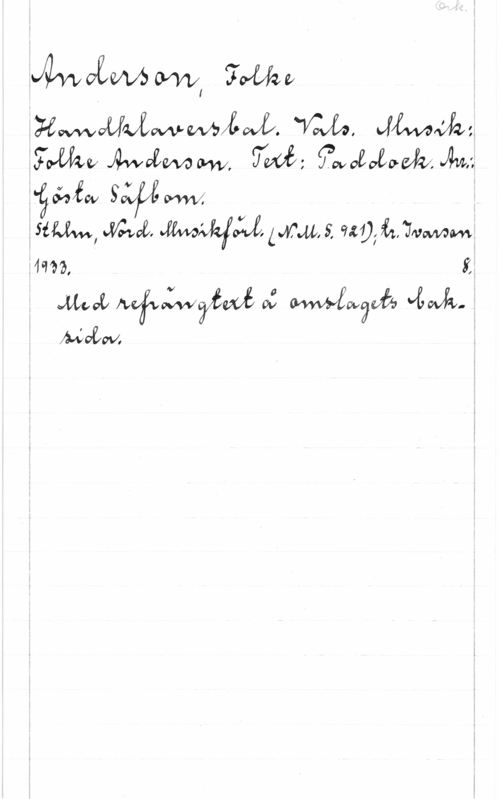 Ork.
Anderson, Folke
Handklaversbal. Vals. Musik:
Folke Anderson. Text: Paddock. Arr.:
Gösta Säfbom.
Sthlm, Nord. Musikförl. (N.M.S. 921); tr. Ivarson
1933. 8.
Med refrängtext å omslagets bak-
sida.